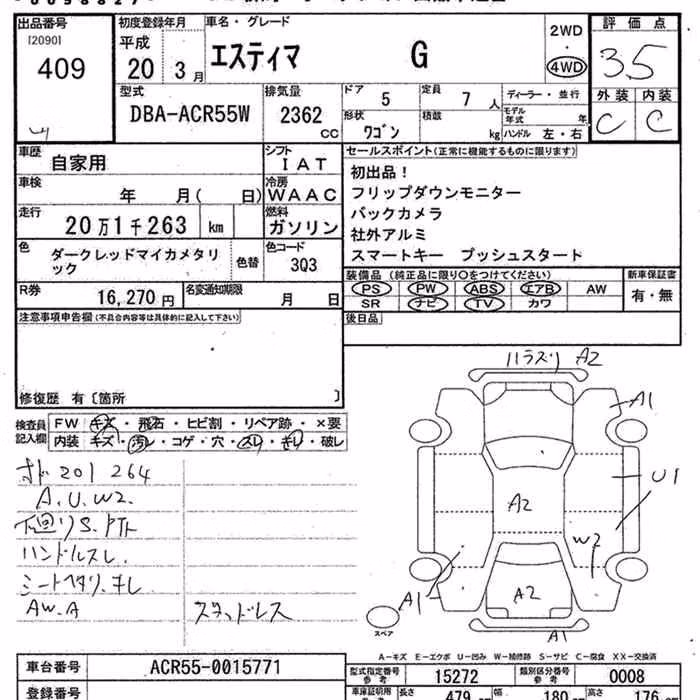 出品番号
[2090]
409
初度登録年月
平成
20 3月
車名・グレード
エスティマ G
2WD
・
4WD
評価点
3.5
外装 内装
C C
型式
DBA-ACR55W
排気量
2362
CC
ドア
5
定員
7人
形状
ワゴン
積載
kg
ディーラー・並行
モデル
年式 年
ハンドル 左・右
車歴
自家用
シフト
IAT
車検
年 月( 日)
冷房
WAAC
走行
20万1千263 km
燃料
ガソリン
色
ダークレッドマイカメタリ
ック
色替
色コード
3Q3
R券
16,270円
名変通知期限
月 日
セールスポイント(正常に機能するものに限ります)
初出品!
フリップダウンモニター
バックカメラ
社外アルミ
スマートキー プッシュスタート
装備品(純正品に限り〇をつけてください)
PS PW ABS エアB AW
SR ナビ TV カワ
新車保証書
有・無
後日品
注意事項申告欄(不具合内容等は具体的に記入して下さい)
修復歴 有〔箇所 〕
検査員
記入欄
FW キズ・飛石・ヒビ割・リペア跡・×要
内装 キズ・汚レ・コゲ・穴・スレ・キレ・破レ
オド201264
A.U.W2.
下廻りS.
ハンドルスレ
シートヘタリ.キレ
AW.A
スタッドレス
A2
A1
U1
A2
W2
A2
A1
A1
スペア
A-キズ E-エクボ U-凹み W-補修跡 S-サビ C-腐食 XX-交換済
車台番号
ACR55-0015771
登録番号
型式指定番号
参考
15272
類別区分番号
参考
0008
車庫証明用
参考
長さ
479
幅
180
高さ
176